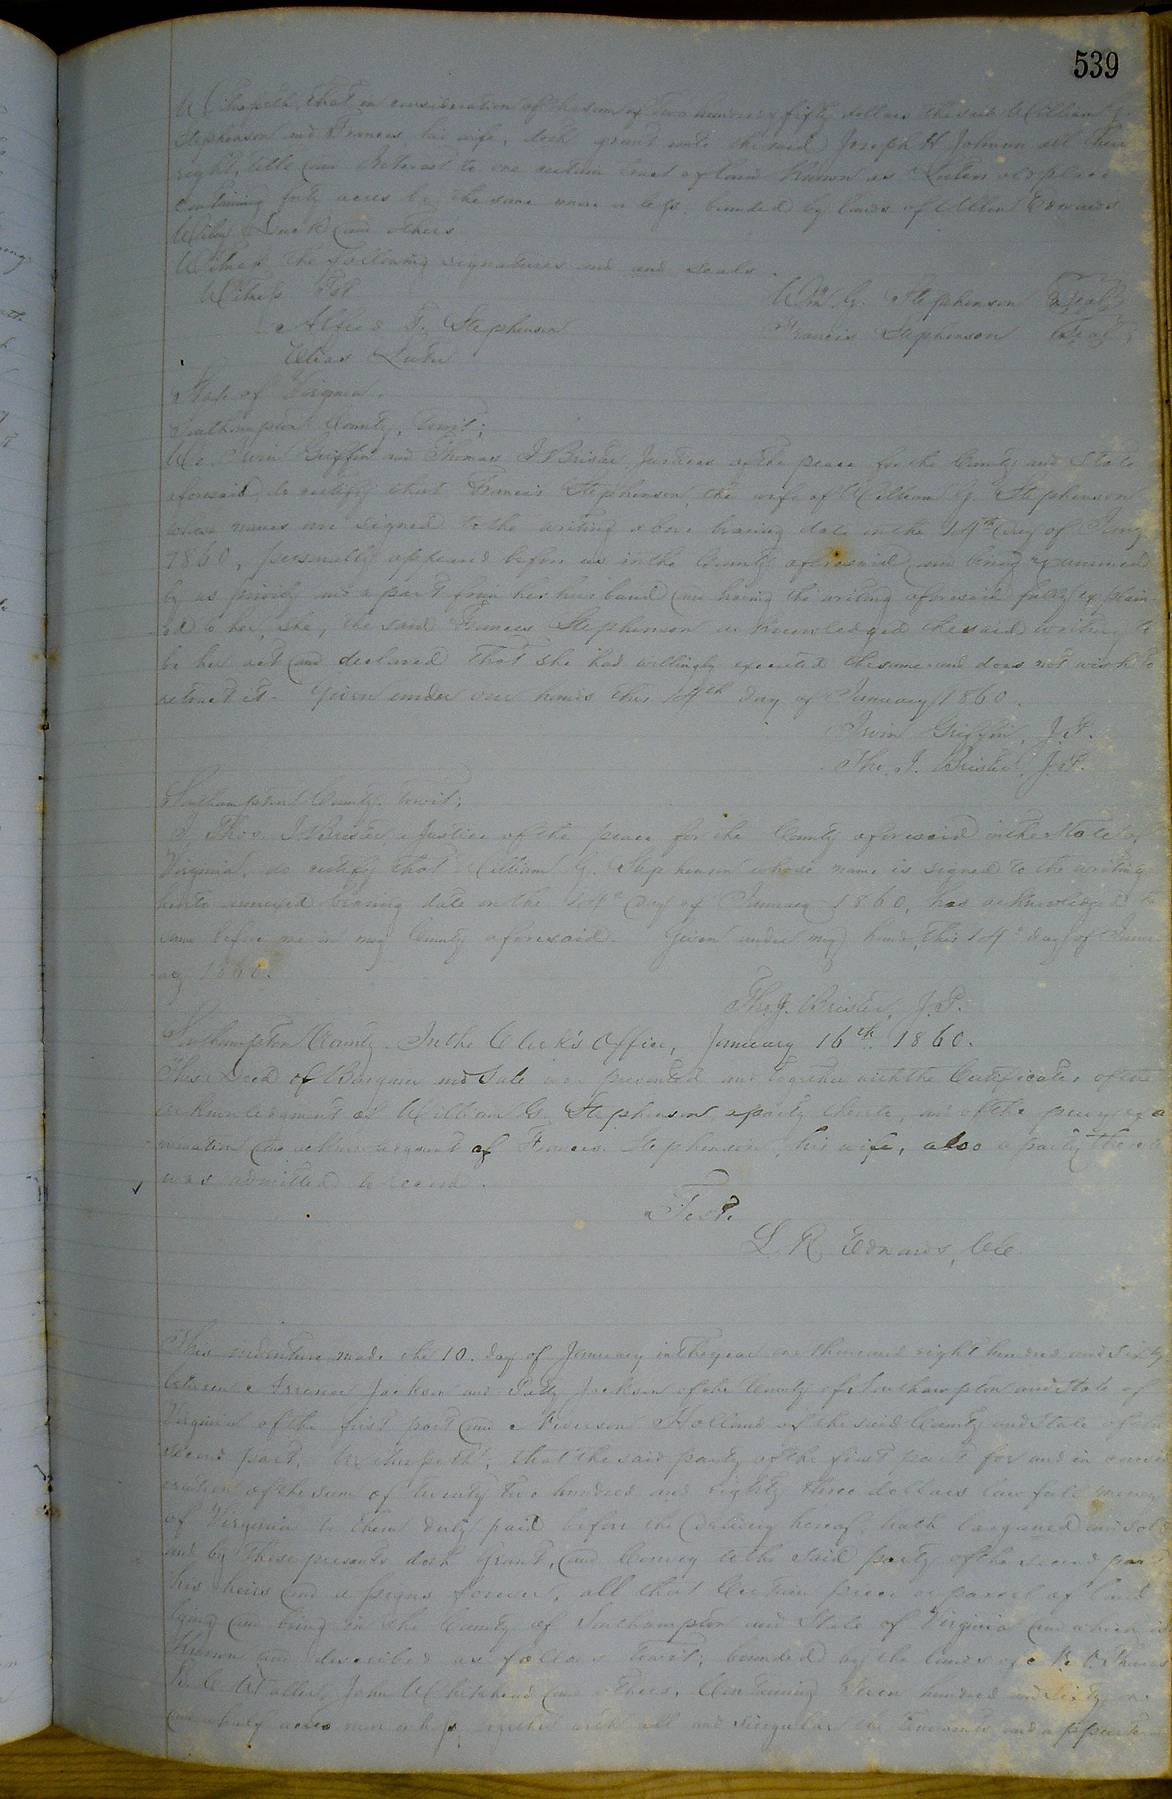 539
Witnesseth, that in consideration of the sum of two hundred fifty dollars the said William G
Stephenson and Frances his wife, doth grant unto the said Joseph H Johnson all their
right, title and Interest to one certain tract of land known as old place
containing forty acres be the same more or less, bounded by lands of Edwards
and others
Witness the following signatures and and seals.
Witness Test
Wm G. Stephenson Seal
Stephenson
Francis Stephenson Seal
Elias
State of Virginia,
Southampton County, towit;
We Irvin Griffin and Thomas J Bristle Justices of the peace for the County and State
aforesaid, do certify that Francis Stephenson, the wife of William G. Stephenson
whose names are signed to the writing above bearing date on the 14th day of Jany
1860, personally appeared before us in the County aforesaid and being examined
by us privily and a part from her husband and having the writing aforesaid fully explain
ed to her, she, the said Frances Stephenson acknowledged the said writing to
be her act and declared that she had willingly executed the same and does not wish to
retract it. Given under our hands this 14th day of January 1860.
Irvin Griffin, J.P.
Tho. J. Bristle, J.P.
Southampton County towit;
I, Thos. J Bristle a Justice of the peace for the County aforesaid in the State of
Virginia, do certify that William G. Stephenson whose name is signed to the writing
hereto annexed bearing date on the 14th day of January 1860, has acknowledged the
same before me in my County aforesaid. Given under my hand, this 14th day of Janu
ary 1860.
Tho. J. Bristle, J.P.
Southampton County. In the Clerk's Office, January 16th 1860.
This Deed of Bargain and Sale was presented and together with the Certificates of the
acknowledgment of William G. Stephenson a party thereto, and of the privy exa
mination and acknowledgment of Frances Stephenson, his wife, also a party thereto
was admitted to record.
Test.
L. R. Edwards, Clk
This indenture made the 10. day of January in the year one thousand eight hundred and Sixty
between Jackson and Jackson of the County of Southampton and State of
Virginia of the first part and Holland of the said County and State of the
second part, Witnesseth, that the said party of the first part for and in consid
eration of the sum of twenty two hundred and Eighty three dollars lawfull money
of Virginia to them duly paid before the delivery hereof hath bargained and sold
and by these presents doth Grant, and Convey to the said party of the second part
his heirs and assigns forever, all that Certain piece or parcel of land
lying and being in the County of Southampton and State of Virginia and which is
known and described as follows towit; bounded by the lands of
John Whitehead and others. Containing hundred and Sixty
and half acres more or less, together with all and singular the tenements and appurten